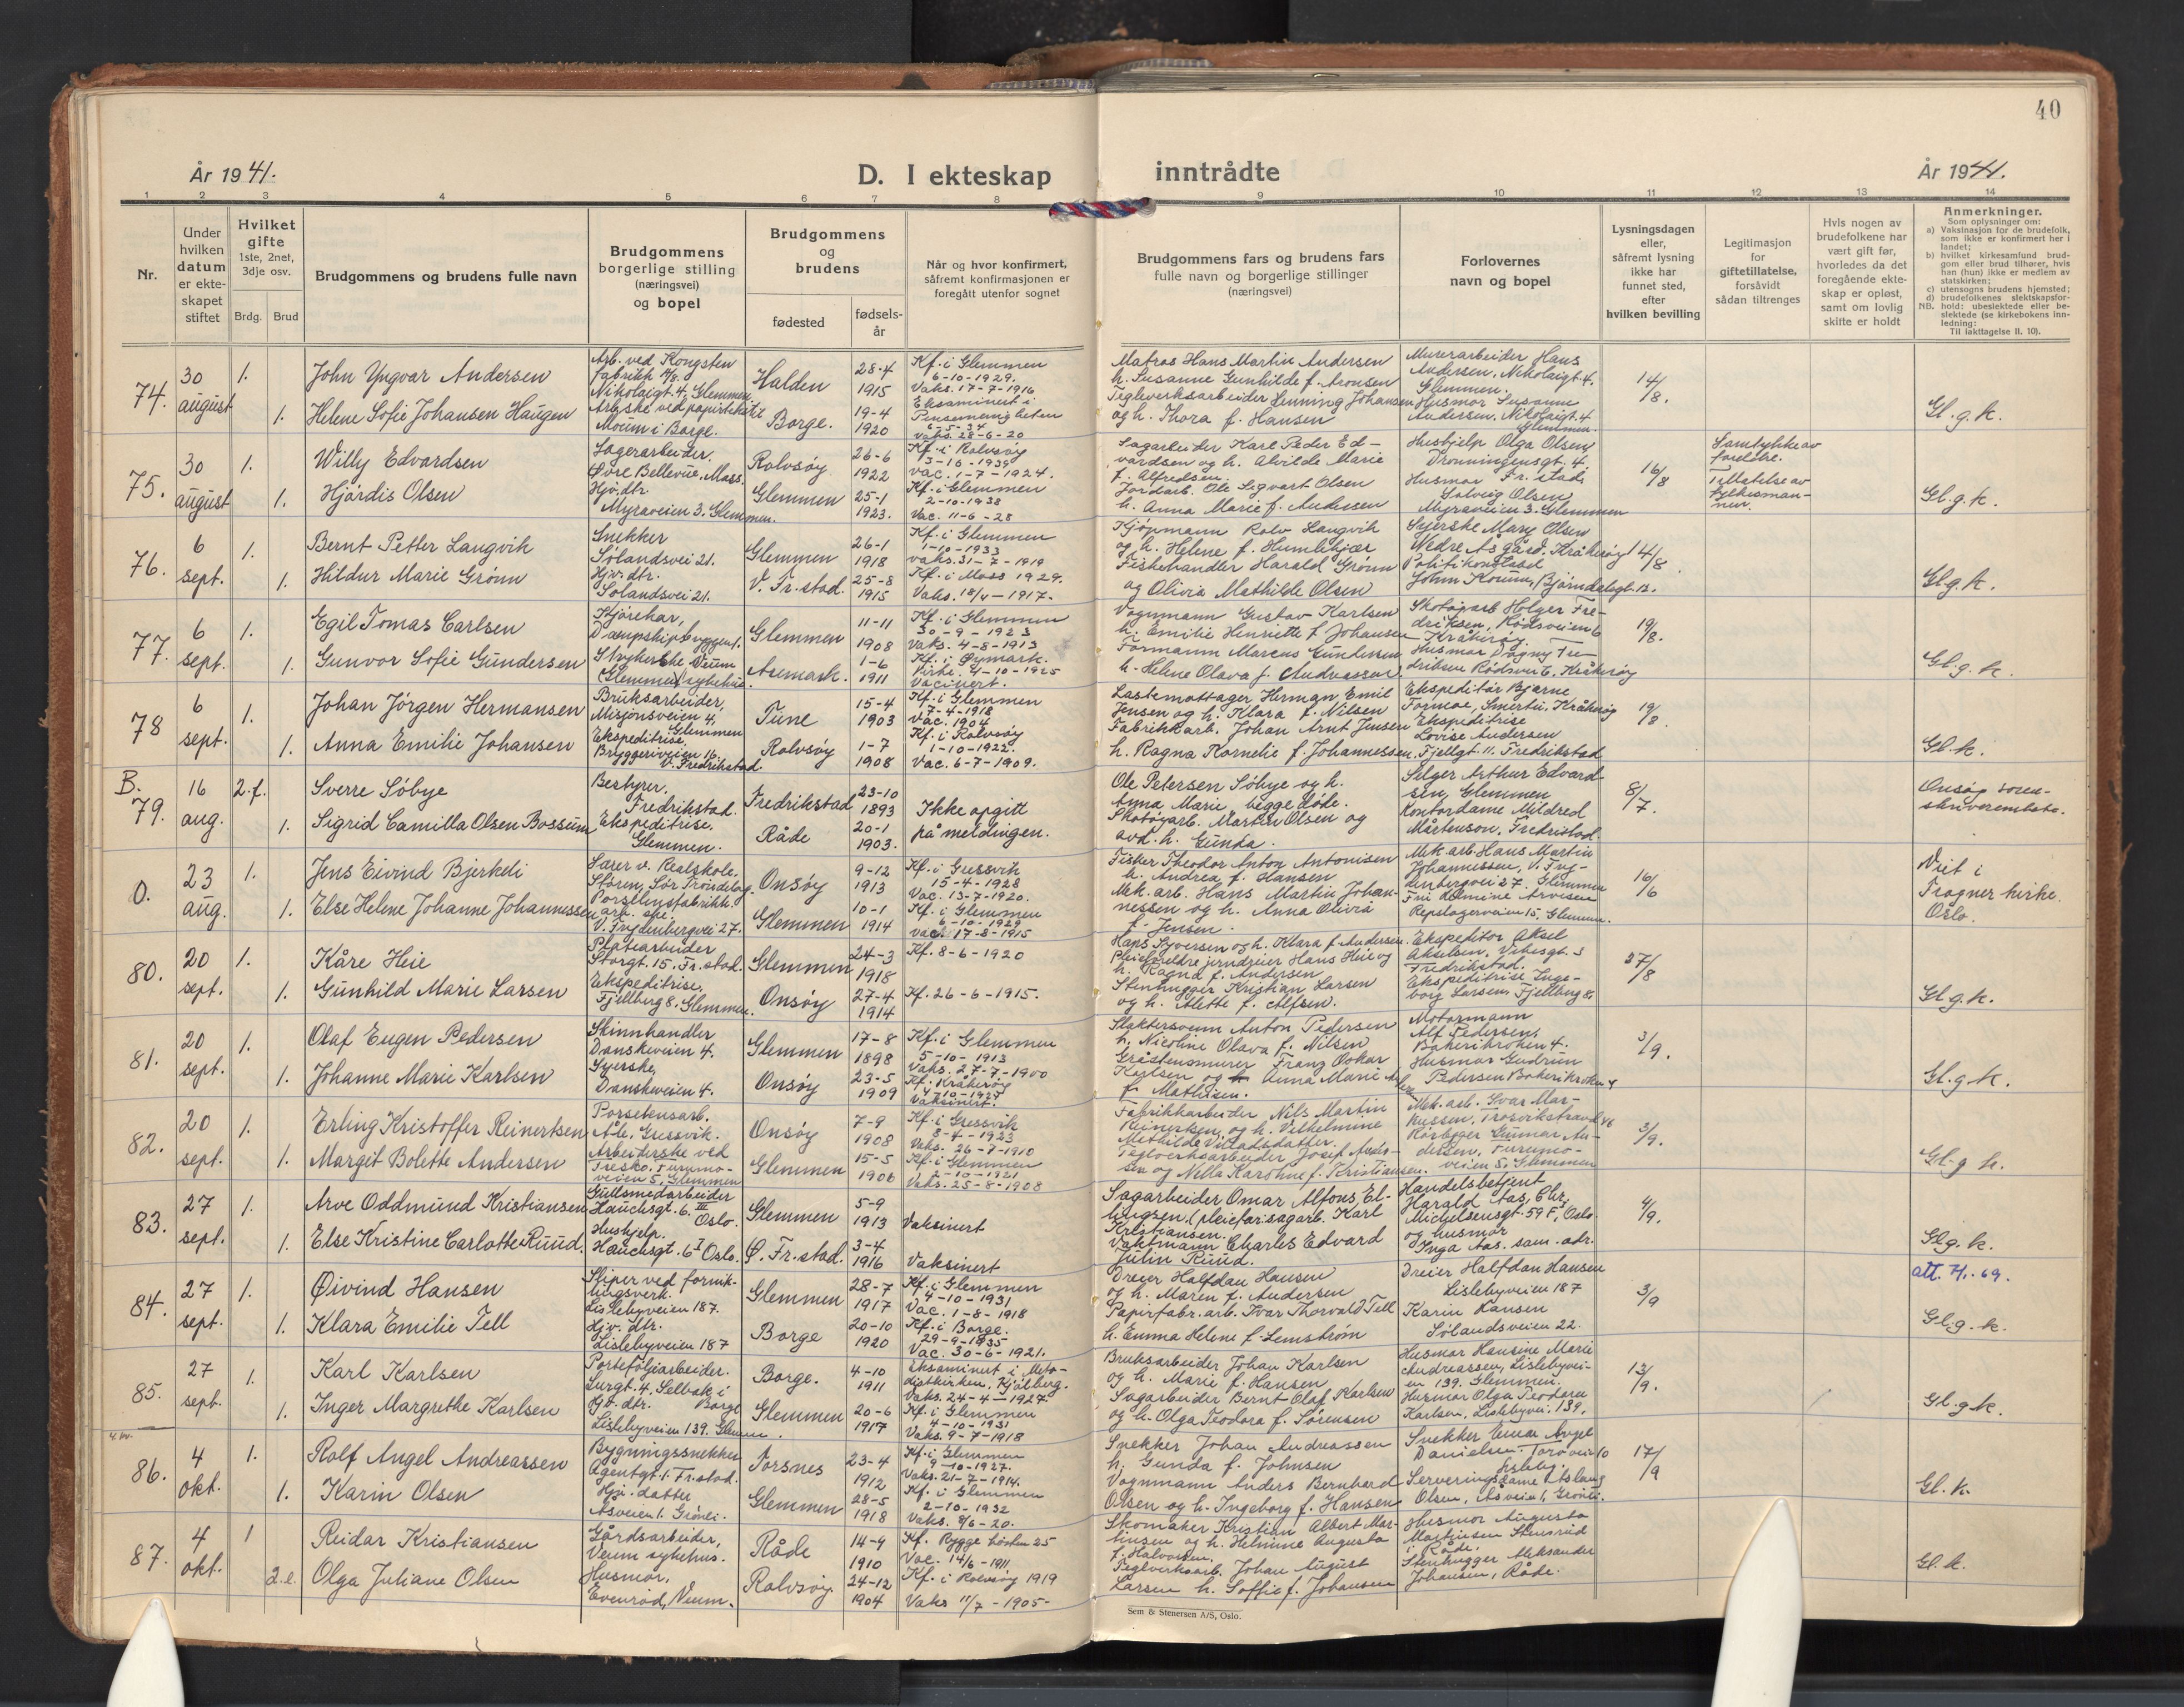 40
År 1941.
D. I ekteskap inntrådte
År 1941.
1 2 3 4 5 6 7 8 9 10 11 12 13 14
Nr.
Under hvilken datum er ekte-skapet stiftet
Hvilket gifte 1ste, 2net, 3dje osv.
Brdg. Brud
Brudgommens og brudens fulle navn
Brudgommens borgerlige stilling (næringsvei) og bopel
Brudgommens og brudens
fødested
fødsels-år
Når og hvor konfirmert, såfremt konfirmasjonen er foregått utenfor sognet
Brudgommens fars og brudens fars fulle navn og borgerlige stillinger (næringsvei)
Forlovernes navn og bopel
Lysningsdagen eller, såfremt lysning ikke har funnet sted, efter hvilken bevilling
Legitimasjon for giftetillatelse, forsåvidt sådan tiltrenges
Hvis nogen av brudefolkene har vært gift før, hvorledes da det foregående ekte-skap er opløst, samt om lovlig skifte er holdt
Anmerkninger.
Som oplysninger om:
a) Vaksinasjon for de brudefolk, som ikke er konfirmert her i landet;
b) hvilket kirkesamfund brud-gom eller brud tilhører, hvis han (hun) ikke er medlem av statskirken;
c) utensogns brudens hjemsted;
d) brudefolkenes slektskapsfor-hold: ubeslektede eller be-slektede (se kirkebokens inn-ledning:
NB. Til iakttagelse II. 10).
74. 30 august 1. John Yngvar Andersen
Arb. ved Kongsten fabrikk A/S. Nikolaigt. 4, Glemmen
Halden 28-4 1915
Kf. i Glemmen 6-10-1929. Vaks. 17-7-1916
Matros Hans Martin Andersen h. Susanne Gunhilde f. Aronsen
Murerarbeider Hans Andersen, Nikolaigt. 4. Glemmen.
14/8.
1. Helene Sofie Johansen Haugen
Moum i Borge.
Borge. 19-4 1920
Eksaminert i 6-5-34 Vaks. 28-6-20
Teglverksarbeider Henning Johansen og h. Thora f. Hansen
Husmor Susanne Andersen, Nikolaigt. 4 Glemmen.
Gl. g. k.
75. 30 august 1. Willy Edvardsen
Lagerarbeider. Øvre Bellevue, Moss.
Rolvsøy 26-6 1922
Kf. i Rolvsøy 3-10-1939 Vac. 1-7-1924.
Sagarbeider Karl Peder Ed-vardsen og h. Alvilde Marie f. Alfredsen
Hushjelp Olga Olsen, Dronningensgt. 4. Fr. stad
16/8
Samtykke av foreldre.
1. Hjørdis Olsen
Hjv. dtr. Myraveien 3. Glemmen.
Glemmen 25-1 1923.
Kf. i Glemmen 2-10-1938 Vac. 11-6-28
Jordarb. Ole Sigvart Olsen h. Anna Marie f. Andersen
Husmor Solveig Olsen, Myraveien 3. Glemmen
Tillatelse av fylkesman-nen.
Gl. g. k.
76. 6 sept. 1. Bernt Petter Langvik
Snekker Sølandsvei 21.
Glemmen 26-1 1918
Kf. i Glemmen 1-10-1933 vaks. 31-7-1919
Kjøpmann Rolv Langvik og h. Helene f. Humlekjær
Syerske Mary Olsen Nedre Åsgård. Kråkerøy
14/8.
1. Hildur Marie Grønn
Hjv. dtr. Sølandsvei 21.
V. Fr. stad. 25-8 1915
Kf. i Moss 1929. Vaks. 18/4-1917.
Fiskehandler Harald Grønn og Olivia Mathilde Olsen
Politikonstabel
Gl. g. k.
77. 6 sept. 1. Egil Tomas Carlsen
Kjørekar, Dampskipbryggen 1.
Glemmen 11-11 1908
Kf. i Glemmen 30-9-1923 Vaks. 4-8-1913
Vognmann Gustav Karlsen h. Emilie Henriette f. Johansen
Skotøyarb. Holger Fre-driksen, Rødsveien 6 Kråkerøy
19/8.
1. Gunvor Sofie Gundersen
Strykerske Veum (Glemmen) sykehus
Aremark. 1-6 1911
Kf. i Øymark. Kirke. 4-10-1925 Vacinert.
Formann Marcus Gundersen h. Helene Olava f. Andreassen
Husmor Dagny Fre-driksen Rødsvei 6, Kråkerøy
Gl. g. k.
78 6 sept. 1. Johan Jørgen Hermansen
Bruksarbeider, Misjonsveien 4, Glemmen
Tune 15-4 1903
Kf. i Glemmen 7-4-1918 Vac. 1904
Lastemottager Herman Emil Jensen og h. Klara f. Nilsen
Ekspeditør Bjarne Formoe, Smertu. Kråkerøy
19/8.
1. Anna Emilie Johansen
Ekspeditrise, Bryggeriveien 16. V. Fredrikstad.
Rolvsøy 1-7 1908
Kf. i Rolvsøy 1-10-1922. Vac. 6-7-1909.
Fabrikkarb. Johan Arnt Jensen h. Ragna Kornelie f. Johannessen.
Ekspeditrise Lovise Andersen Fjellgt. 11. Fredrikstad
Gl. k.
B. 79. 16 aug. 2. f. Sverre Søbye
Bestyrer, Fredrikstad.
Fredrikstad 23-10 1893
Ikke opgitt på meldingen.
Ole Petersen Søbye og h. Anna Marie, begge døde.
Selger Arthur Edvard-sen, Glemmen
8/7.
Onsøy soren-skriverembete.
1. Sigrid Camilla Olsen Bossum
Ekspeditrise, Glemmen.
Råde 20-1 1903.
Skotøyarb. Martin Olsen og avd. h. Gunda.
Kontordame Mildred Mårtenson, Fredrikstad.
0. 23 aug. 1. Jens Eivind Bjerkedi
Lærer v. Realskole. Støren, Sør Trøndelag.
Onsøy 9-12 1913
Kf. i Gressvik 15-4-1928 Vac. 13-7-1920.
Fisker Theodor Anton Antonisen h. Andrea f. Hansen
Mek. arb. Hans Martin Johannessen, V. Fry-denbergvei 27. Glemmen
16/6
Viet i Frogner kirke. Oslo.
1. Else Helene Johanne Johannessen
Porselensfabrikk. arb. ske. V. Frydenbergvei 27.
Glemmen 10-1 1914
Kf. i Glemmen 6-10-1929 Vac. 17-8-1915
Mek. arb. Hans Martin Johan-nessen og h. Anna Olivia f. Jensen.
Repslagerveien 15, Glemmen.
80. 20 sept. 1. Kåre Heie
Platearbeider Storgt. 15. Fr. stad.
Glemmen 24-3 1918
Kf. 8-6-1920
Hans Syversen og h. Klara f. Andersen. Pleieforeldre jerndreier Hans Heie og h. Ragna f. Andersen
Ekspeditør Aksel Akselsen, Vibesgt. 3 Fredrikstad.
27/8
1. Gunhild Marie Larsen
Ekspeditrise, Fjellberg 8. Glemmen.
Onsøy 27-4 1914
Kf. 26-6-1915.
Stenhugger Kristian Larsen og h. Alette f. Alfsen.
Ekspeditrise Inge-borg Larsen, Fjellberg 8.
Gl. g. k.
81. 20 sept. 1. Olaf Eugen Pedersen
Skinnhandler Danskeveien 4.
Glemmen 17-8 1898
Kf. i Glemmen 5-10-1913 Vaks. 27-7-1900
Slaktersvenn Anton Pedersen h. Nicoline Olava f. Nilsen
Motormann Alf Pedersen, Bakerikroken 4.
3/9.
1. Johanne Marie Karlsen
Syerske, Danskeveien 4.
Onsøy 23-5 1909
Kf. Kråkerøy Vaksinert.
Gråstensmurer Franz Oskar Karlsen og Anna Marie f. Mathisen.
Husmor Gudrun Pedersen Bakerikroken 4
Gl. g. k.
82. 20 sept. 1. Erling Kristoffer Reinertsen
Porselensarb. Ale, Gressvik.
Onsøy 7-9 1908
Kf. i Gressvik 8-4-1923 Vaks. 26-7-1910
Fabrikkarbeider Nils Martin Reinertsen, og h. Vilhelmine Mathilde Villadsdatter.
Mek. arb. Ivar Mar-kussen, Trosvikstrand 46
3/9.
1. Margit Bolette Andersen
Arbeiderske ved Tresko. Furumo-veien 5. Glemmen
Glemmen 15-5 1906
Kf. i Glemmen 2-10-1921 Vaks. 25-8-1908
Teglverksarbeider Josef Ander-sen og Nella Karoline f. Kristiansen.
Rørbygger Gunnar An-dersen, Furumo-veien 5. Glemmen
Gl. g. k.
83. 27 sept. 1. Arve Oddmund Kristiansen
Gullsmedarbeider Hauchsgt. 6. III Oslo.
Glemmen 5-9 1913
Vaksinert
Sagarbeider Omar Alfons El-lingsen. (pleiefar: sagarb. Karl Kristiansen.
Handelsbetjent Harald Aas, Chr. Michelsensgt. 59 F, Oslo.
4/9.
1. Else Kristine Carlotte Ruud.
Hushjelp. Hauchsgt. 6 I Oslo.
Ø. Fr. stad. 3-4 1916
Vaksinert
Vaktmann Charles Edvard Julin Ruud.
og husmor Inga Aas. sam. adr.
Gl. g. k.
84. 27 sept. 1. Øivind Hansen
Sliper ved fornik-lingsverk. Lislebyveien 187.
Glemmen 28-7 1917
Kf. i Glemmen 4-10-1931 Vac. 1-8-1918
Dreier Halfdan Hansen og h. Maren f. Andersen
Dreier Halfdan Hansen Lislebyveien 187
3/9
att. 7/1-69.
1. Klara Emilie Tell
Hjv. dtr. Lislebyveien 187
Borge 20-10 1920
Kf. i Borge. 29-9-1935 Vac. 30-6-1921.
Papirfabr. arb. Ivar Thorvald Tell h. Emma Helene f. Lemstrøm
Karin Hansen Sølandsveien 22.
Gl. g. k.
85. 27 sept. 1. Karl Karlsen
Porteføljearbeider. Lurgt. 4. Selbak i Borge
Borge. 4-10 1911
Eksaminert i Meto-distkirken, Kjølberg. Vaks. 24-4-1927.
Bruksarbeider Johan Karlsen og h. Marie f. Hansen
Husmor Hansine Marie Andreassen, Lislebyvei-en 139. Glemmen.
13/9.
1. Inger Margrethe Karlsen
Hjv. dtr. Lislebyveien 139. Glemmen.
Glemmen 20-6 1917
Kf. i Glemmen 4-10-1931 Vaks. 9-7-1918
Sagarbeider Bernt Olaf Karlsen og h. Olga Teodora f. Sørensen
Husmor Olga Teodora Karlsen, Lislebyvei. 139.
Gl. g. k.
86. 4 okt. 1. Rolf Angel Andreassen
Bygningssnekker Agentgt. 1. Fr. stad.
Torsnes 23-4 1912
Kf. i Glemmen 9-10-1927. Vaks. 21-7-1914.
Snekker Johan Andreassen h. Gunda f. Johnsen
Snekker Einar Angel Danielsen. Torøveien 10 Lisleby.
17/9
1. Karin Olsen
Hjv. datter Åsveien 1. Grønli.
Glemmen 28-5 1918
Kf. i Glemmen 2-10-1932 Vaks. 8/6-20.
Vognmann Anders Bernhard Olsen og h. Ingeborg f. Hansen
Serveringsdame Aslaug Olsen, Åsveien 1, Grønli.
Gl. k.
87. 4 okt. 1 Reidar Kristiansen
Gårdsarbeider, Veum sykehus.
Råde 14-9 1910
Kf. Rygge høsten 25 Vac. 14/6-1911
Skomaker Kristian Albert Mar-tinsen og h. Helmine Augusta f. Halvorsen.
Husmor Augusta Martinsen Stensrud i Råde.
2. e. Olga Juliane Olsen
Husmor, Evenrød, Veum.
Rolvsøy 24-12 1904
Kf. i Rolvsøy 1919 Vaks 11/7-1905-
Teglverksarb. Johan August Larsen h. Soffie f. Johansen
Stenhugger Aleksander Johansen, Råde.
Gl. k.
Sem & Stenersen A/S, Oslo.